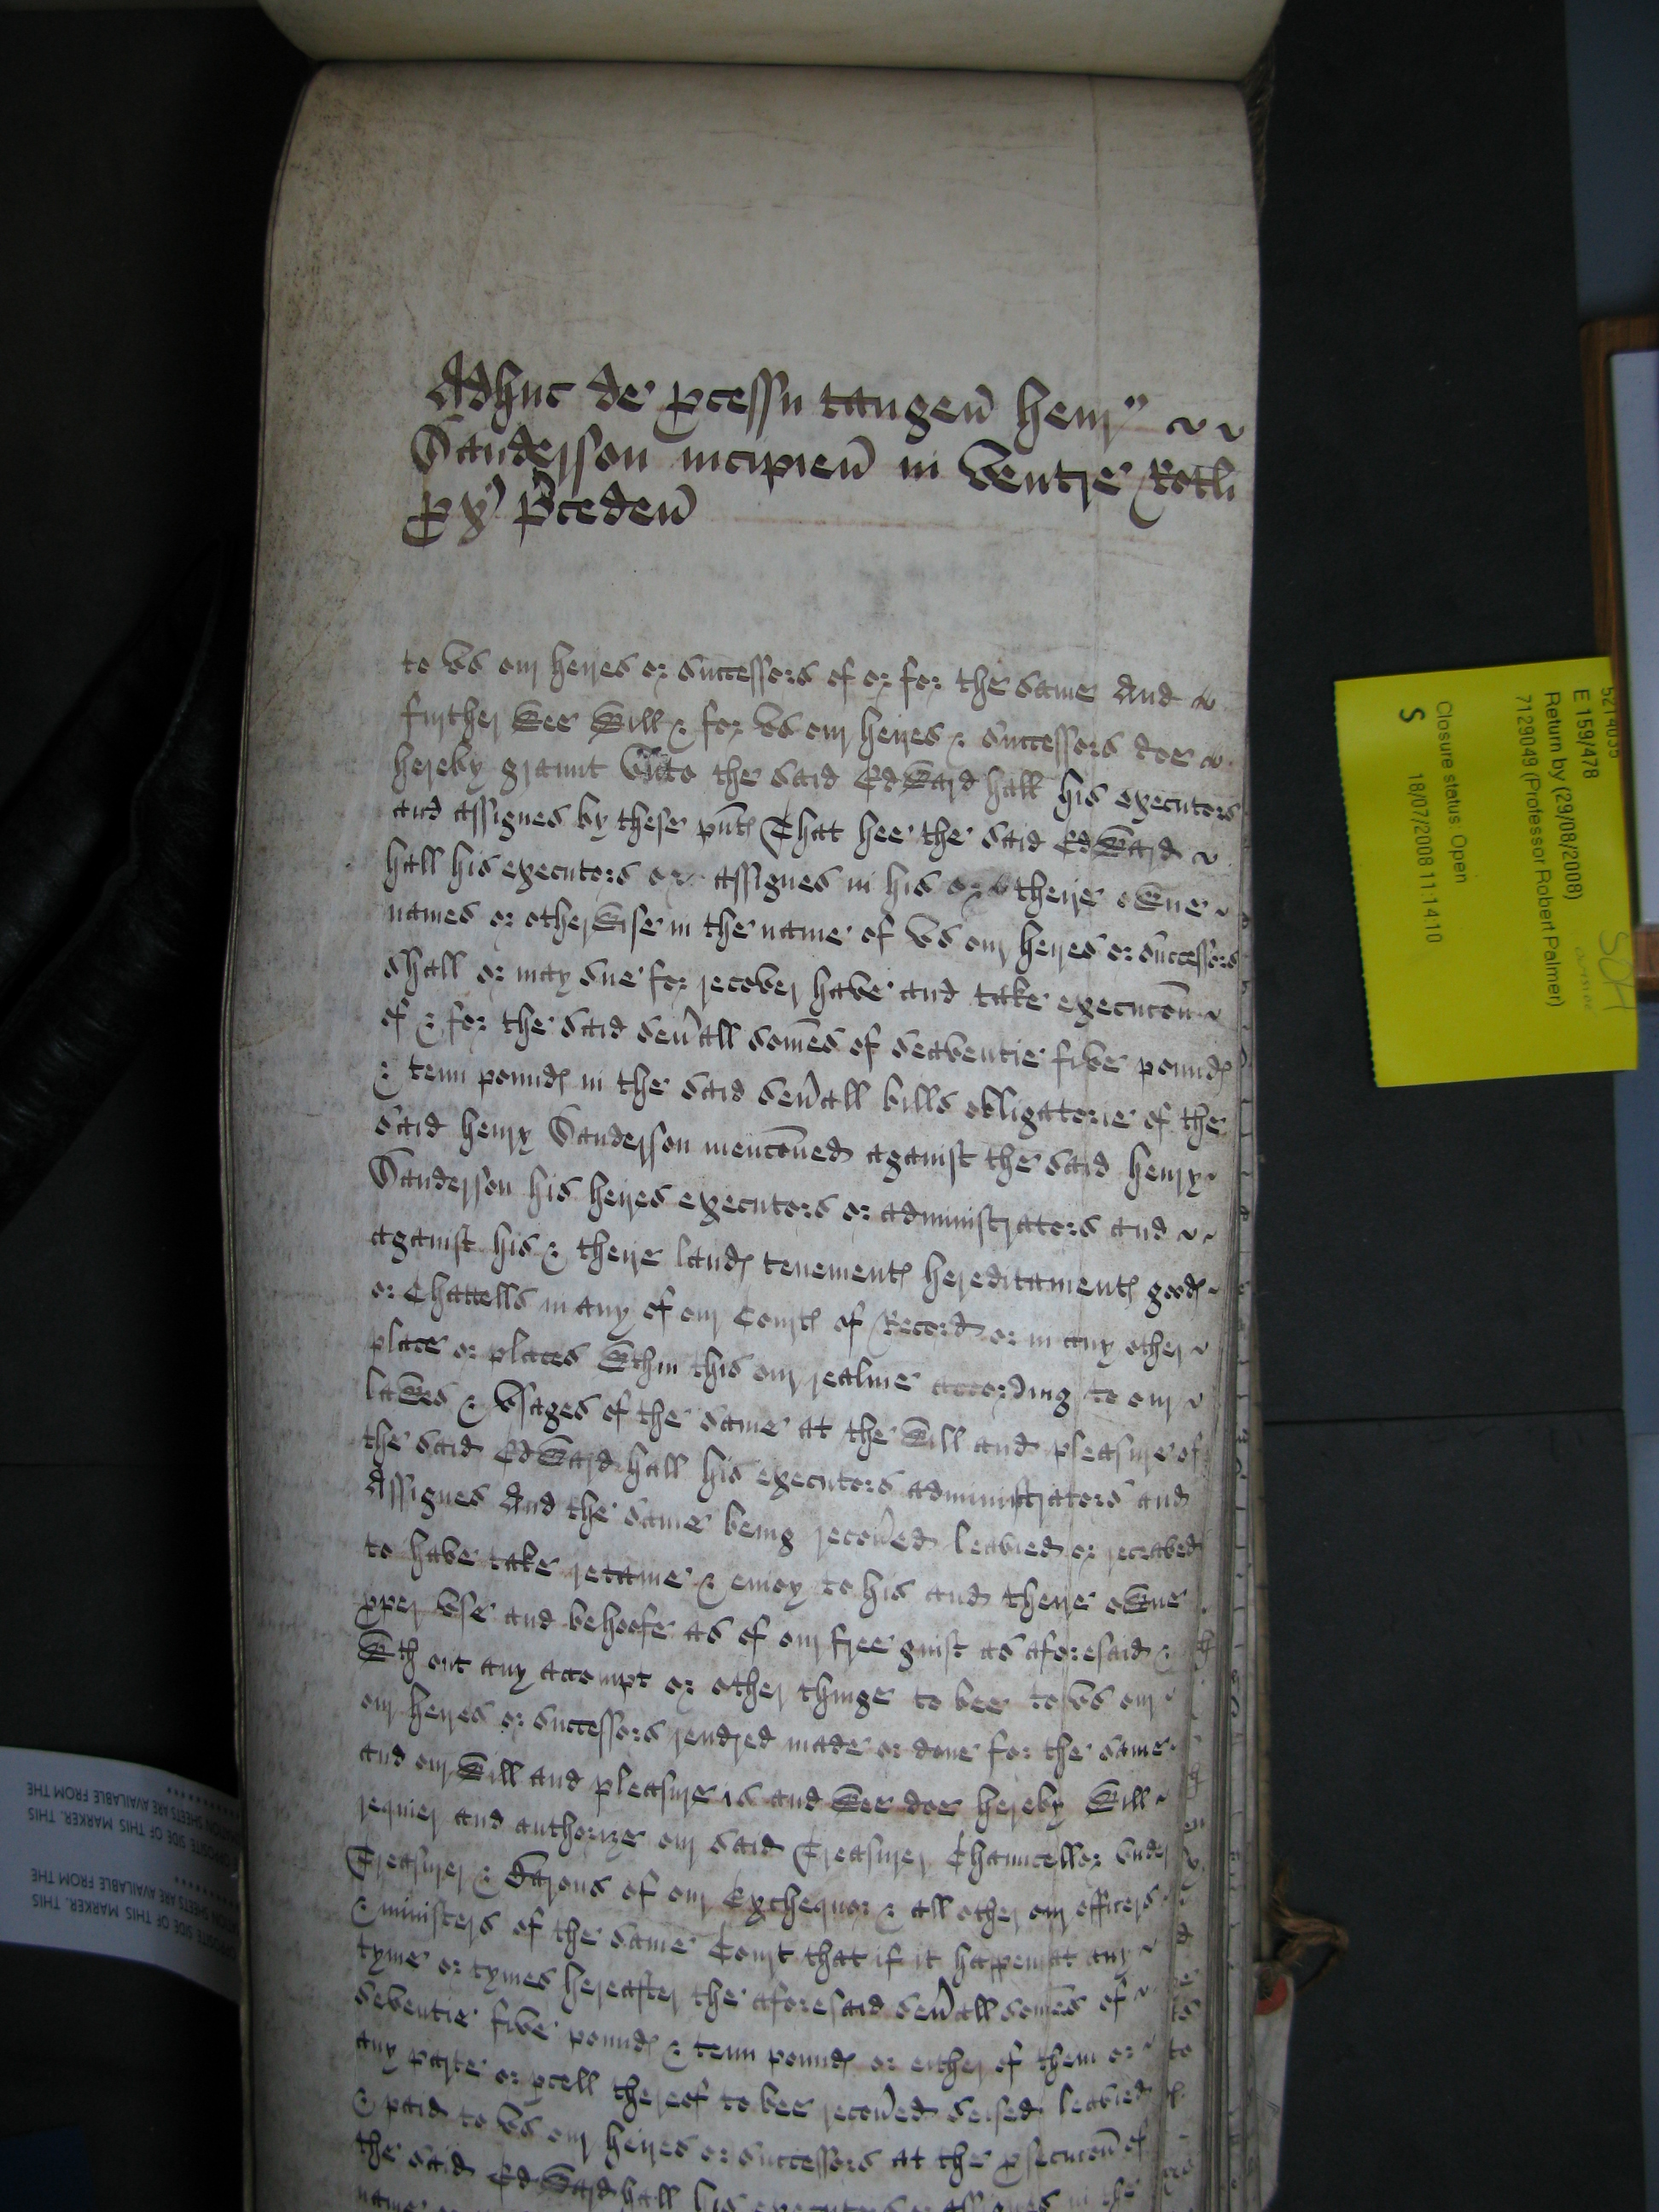 Adhuc de pcessu tangen Henr
Sanderson incipien in ventre Rotli
px pceden
to vs our heires or successors of or for the same And
further wee will & for vs our heires & successors doe
hereby graunt vnto the said Edward Hall his executors
and assignes by these pnts That hee the said Edward
Hall his executors or assignes in his or theire owne
names or otherwise in the name of vs our heires or successors
shall or may sue for recover have and take execucon
of & for the said seuall somes of seaventie five pounds
& tenn pounds in the said seuall bills obligatorie of the
said Henry Sanderson menconed against the said Henry
Sanderson his heires executors or administrators and
against his & theire lands tenements hereditaments goods
or Chattells in any of our Courts of Record or in any other
place or places wthin this our realme according to our
lawes & vsages of the same at the will and pleasure of
the said Edward Hall his executors administrators and
Assignes And the same being recoued leavied or receaved
to have take retaine & enioy to his and theire owne
pper vse and behoofe as of our free guift as aforesaid &
wth out any accompt or other thinge to bee to vs our
our heires or successors rendred made or done for the same
and our will and pleasure is and wee doe hereby will
requier and authorize our said Treasurer Chauncellor vnder
Treasurer & Barons of our Exchequor & all other our officers
& ministers of the same Court that if it happen at any
tyme or tymes hereafter the aforesaid seuall somes of
seventie five pounds & tenn pounds or either of them or
any parte or pcell thereof to bee recoued seised leavied
& paid to vs our heires or successors at the psecucon of
the said Edward Hall his executors or assignes in the
5214035
E 159/478
Return by (29/08/2008)
7129049 (Professor Robert Palmer)
Closure status: Open
18/07/2008 11:14:10
S
SOH
OPPOSITE SIDE OF THIS MARKER. THIS
SHEETS ARE AVAILABLE FROM THE
OPPOSITE SIDE OF THIS MARKER. THIS
SHEETS ARE AVAILABLE FROM THE